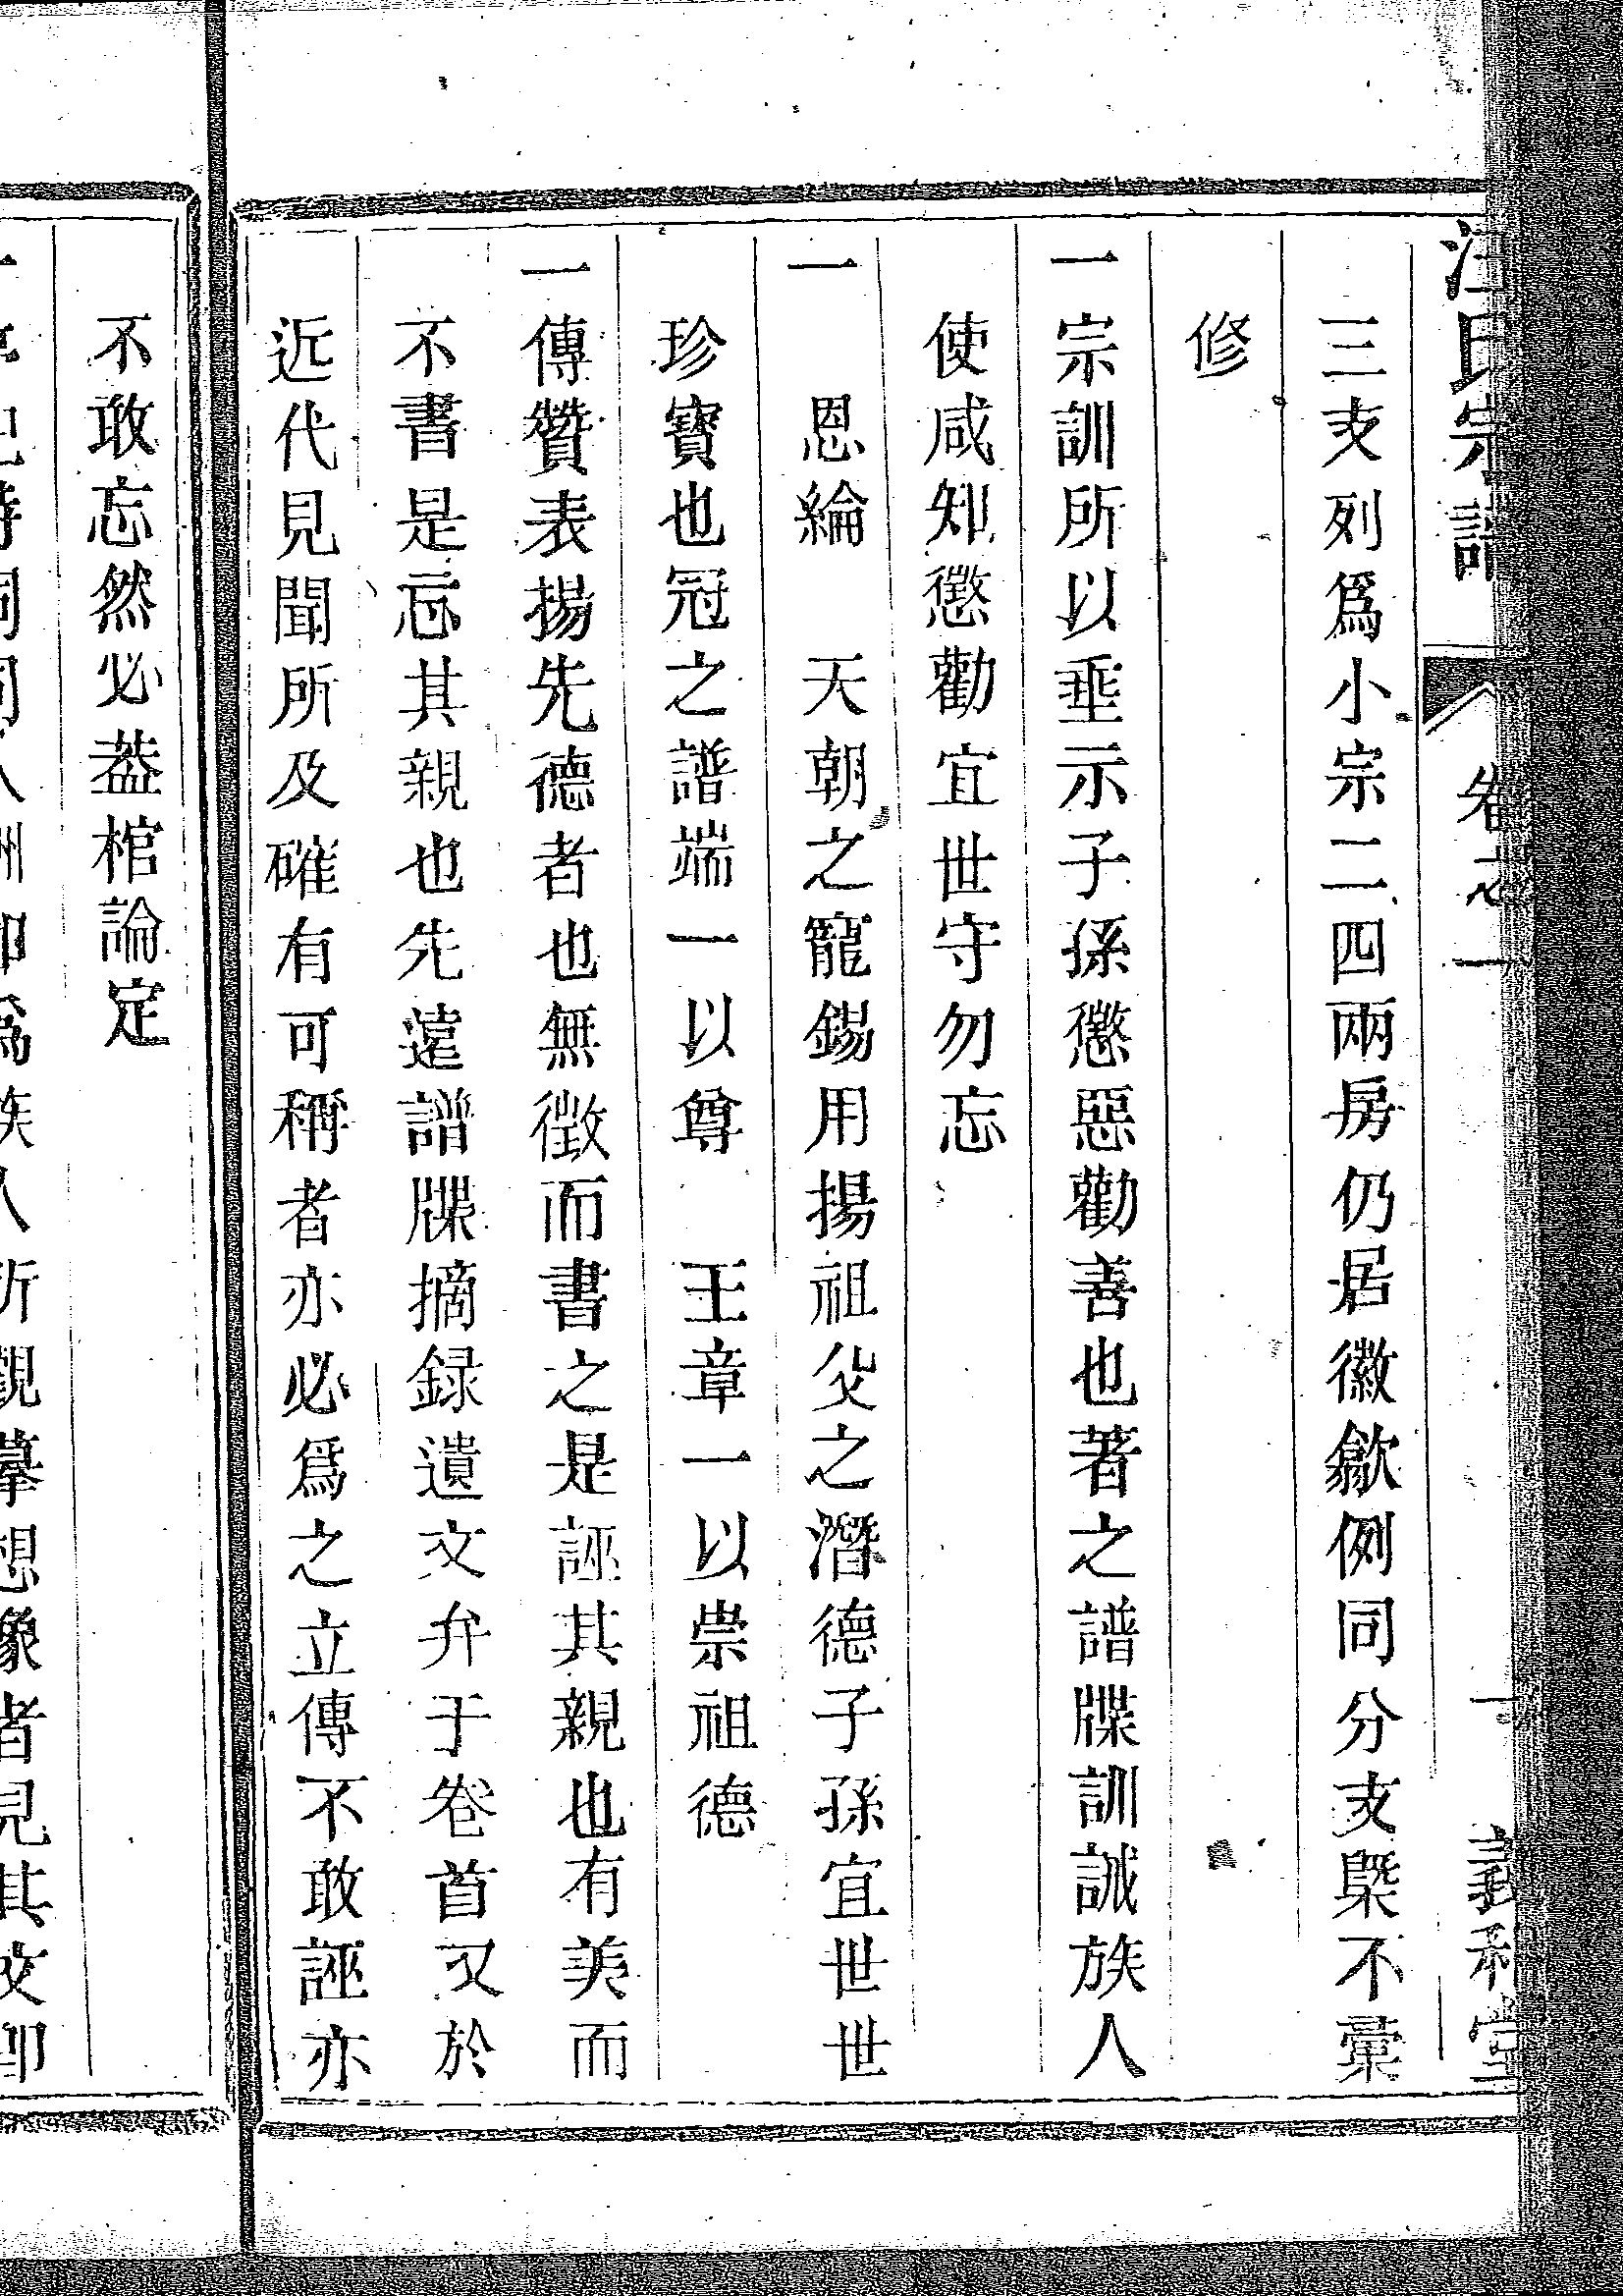 汪氏宗譜 卷之一 一 義和堂
三支列爲小宗二四兩房仍居徽歙例同分支槩不彙
修
一宗訓所以垂示子孫懲惡勸善也著之譜牒訓誡族人
使咸知懲勸宜世守勿忘
一 恩綸 天朝之寵錫用揚祖父之潛德子孫宜世世
珍寶也冠之譜端一以尊 王章一以崇祖德
一傳贊表揚先德者也無徵而書之是誣其親也有美而
不書是忘其親也先遠譜牒摘録遺文弁于卷首又於
近代見聞所及確有可稱者亦必爲之立傳不敢誣亦
不敢忘然必葢棺論定
爲族人所觀摹想像者見其文卽